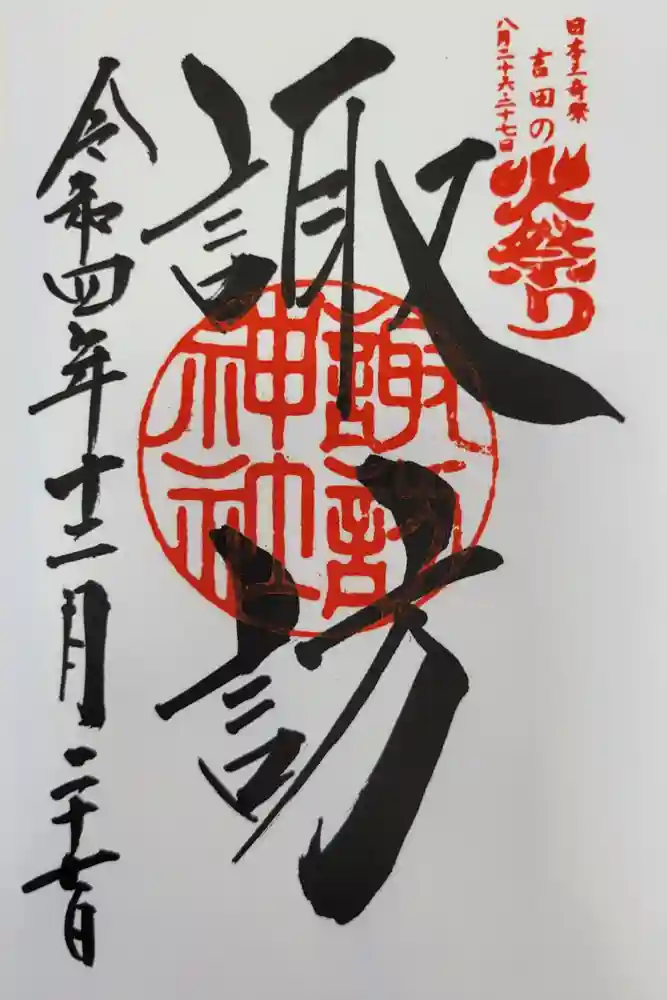 日本三奇祭
吉田の
八月二十六・二十七日
火祭り
諏訪
諏訪
神社
令和四年十二月二十七日